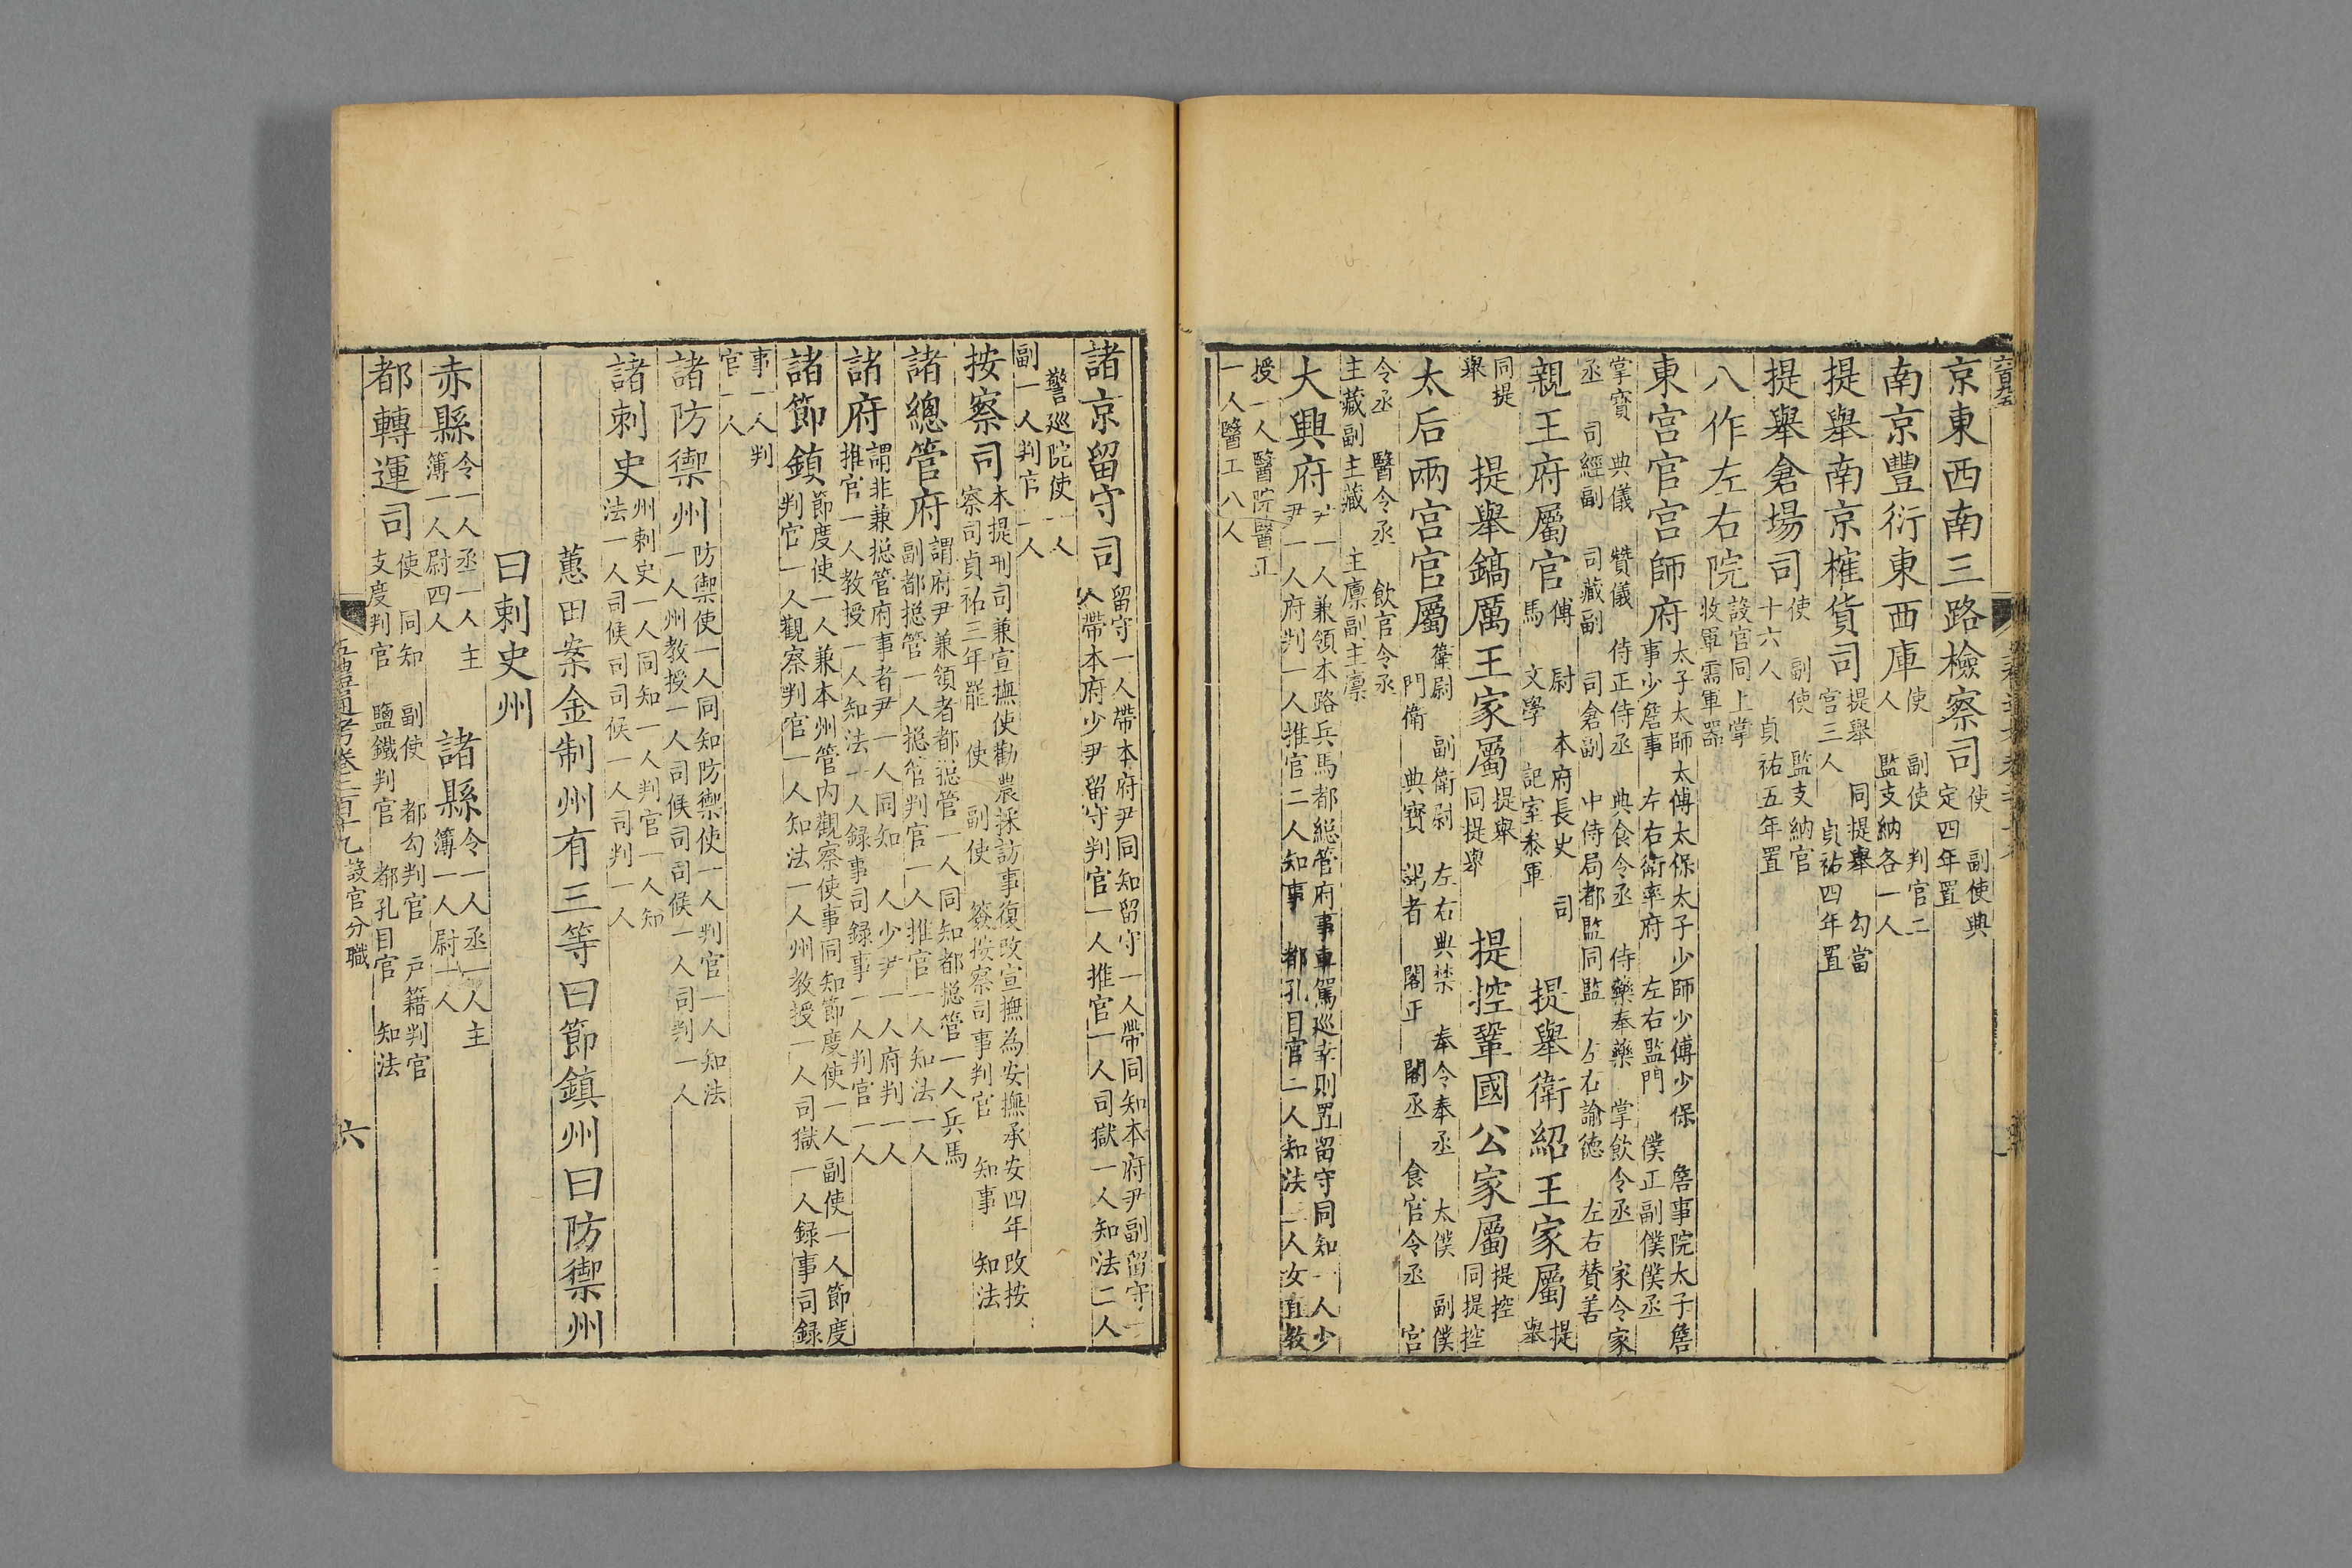 京東西南三路檢察司使 副使典
定四年置
南京豐衍東西庫使 副使 判官二
人 監支納各一人
提舉南京榷貨司提舉 同提舉 勾當
官三人 貞祐四年置
提舉倉場司使 副使 監支納官
十六人 貞祐五年置
八作左右院設官同上掌
收軍需軍器
東宮官宮師府太子太師太傅太保太子少師少傅少保 詹事院太子詹
事少詹事 左右衛率府 左右監門 僕正副僕僕丞
掌寶 典儀 贊儀 侍正侍丞 典食令丞 侍藥奉藥 掌飲令丞 家令家
丞 司經副 司藏副 司倉副 中侍局都監同監 左右諭德 左右贊善
親王府屬官傅 尉 本府長史 司
馬 文學 記室叅軍 提舉衛紹王家屬提
舉
同提
舉 提舉鎬厲王家屬提舉
同提舉 提控鞏國公家屬提控
同提控
太后兩宮官屬衛尉 副衛尉 左右典禁 奉令奉丞 太僕 副僕
門衛 典寶 謁者 閣正 閣丞 食官令丞 宮
令丞 醫令丞 飲官令丞
主藏副主藏 主廪副主廪
大興府尹一人兼領本路兵馬都総管府事車駕巡幸則置留守同知一人少
尹一人府判一人推官二人知事 都孔目官二人知法二人女直教
授一人醫院醫正
一人醫工八人
諸京留守司留守一人帶本府尹同知留守一人帶同知本府尹副留守一
人帶本府少尹留守判官一人推官一人司獄一人知法二人
警巡院使一人
副一人判官一人
按察司本提刑司兼宣撫使勸農採訪事復改宣撫為安撫承安四年改按
察司貞祐三年罷 使 副使 簽按察司事判官 知事 知法
諸總管府謂府尹兼領者都摠管一人同知都摠管一人兵馬
副都摠管一人摠管判官一人推官一人知法一人
諸府謂非兼摠管府事者尹一人同知一人少尹一人府判一人
推官一人教授一人知法一人録事司録事一人判官一人
諸節鎮節度使一人兼本州管內觀察使事同知節度使一人副使一人節度
判官一人觀察判官一人知法一人州教授一人司獄一人録事司録
事一人判
官一人
諸防禦州防禦使一人同知防禦使一人判官一人知法
一人州教授一人司候司司候一人司判一人
諸刺史州刺史一人同知一人判官一人知
法一人司候司司候一人司判一人
蕙田案金制州有三等曰節鎮州曰防禦州
曰刺史州
赤縣令一人丞一人主
簿一人尉四人 諸縣令一人丞一人主
簿一人尉一人
都轉運司使 同知 副使 都勾判官 戶籍判官
支度判官 鹽鐵判官 都孔目官 知法
五禮通考卷二百十九 設官分職 六